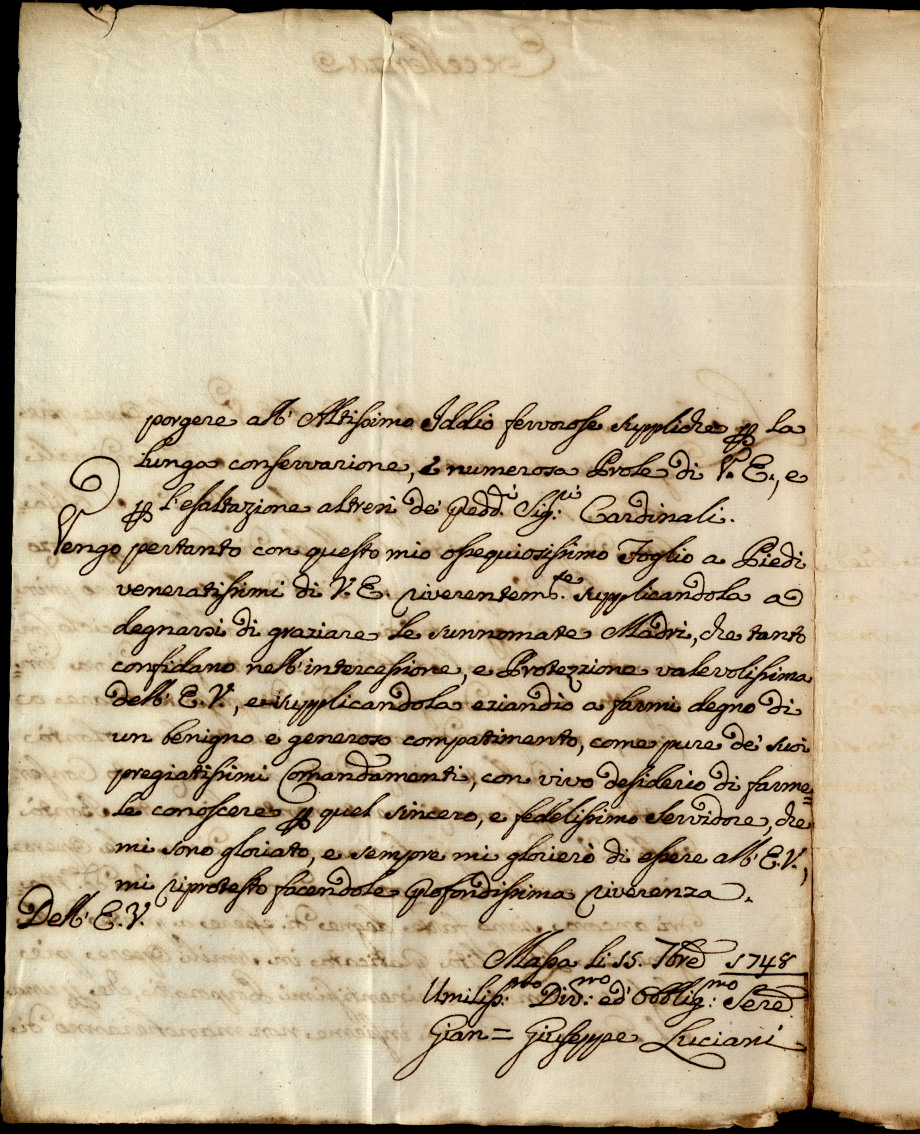 porgere all' Altissimo Iddio fervorose suppliche p la
lunga conservazione, e numerosa Prole di V. E., e
p l'esaltazione altresì de' predd.i Sig.ri Cardinali.
Vengo pertanto con questo mio ossequiosissimo Foglio a Piedi
veneratissimi di V. E. riverentem.te supplicandola a
degnarsi di graziare le sunnomate Madri, che tanto
confidano nell'intercessione, e Protezzione valevolissima
dell' E. V., e supplicandola eziandio a farmi degno di
un benigno e generoso compatimento, come pure de' suoi
pregiatissimi Comandamenti, con vivo desiderio di farme=
le conoscere p quel sincero, e fedelissimo servidore, che
mi sono gloriato, e sempre mi glorierò di essere all' E. V.,
mi riprotesto facendole profondissima riverenza.
Dell' E. V.
Massa li 15. 7bre 1748
Umiliss.mo Div.mo ed' Obblig.mo Sere
Gian= Giuseppe Luciani